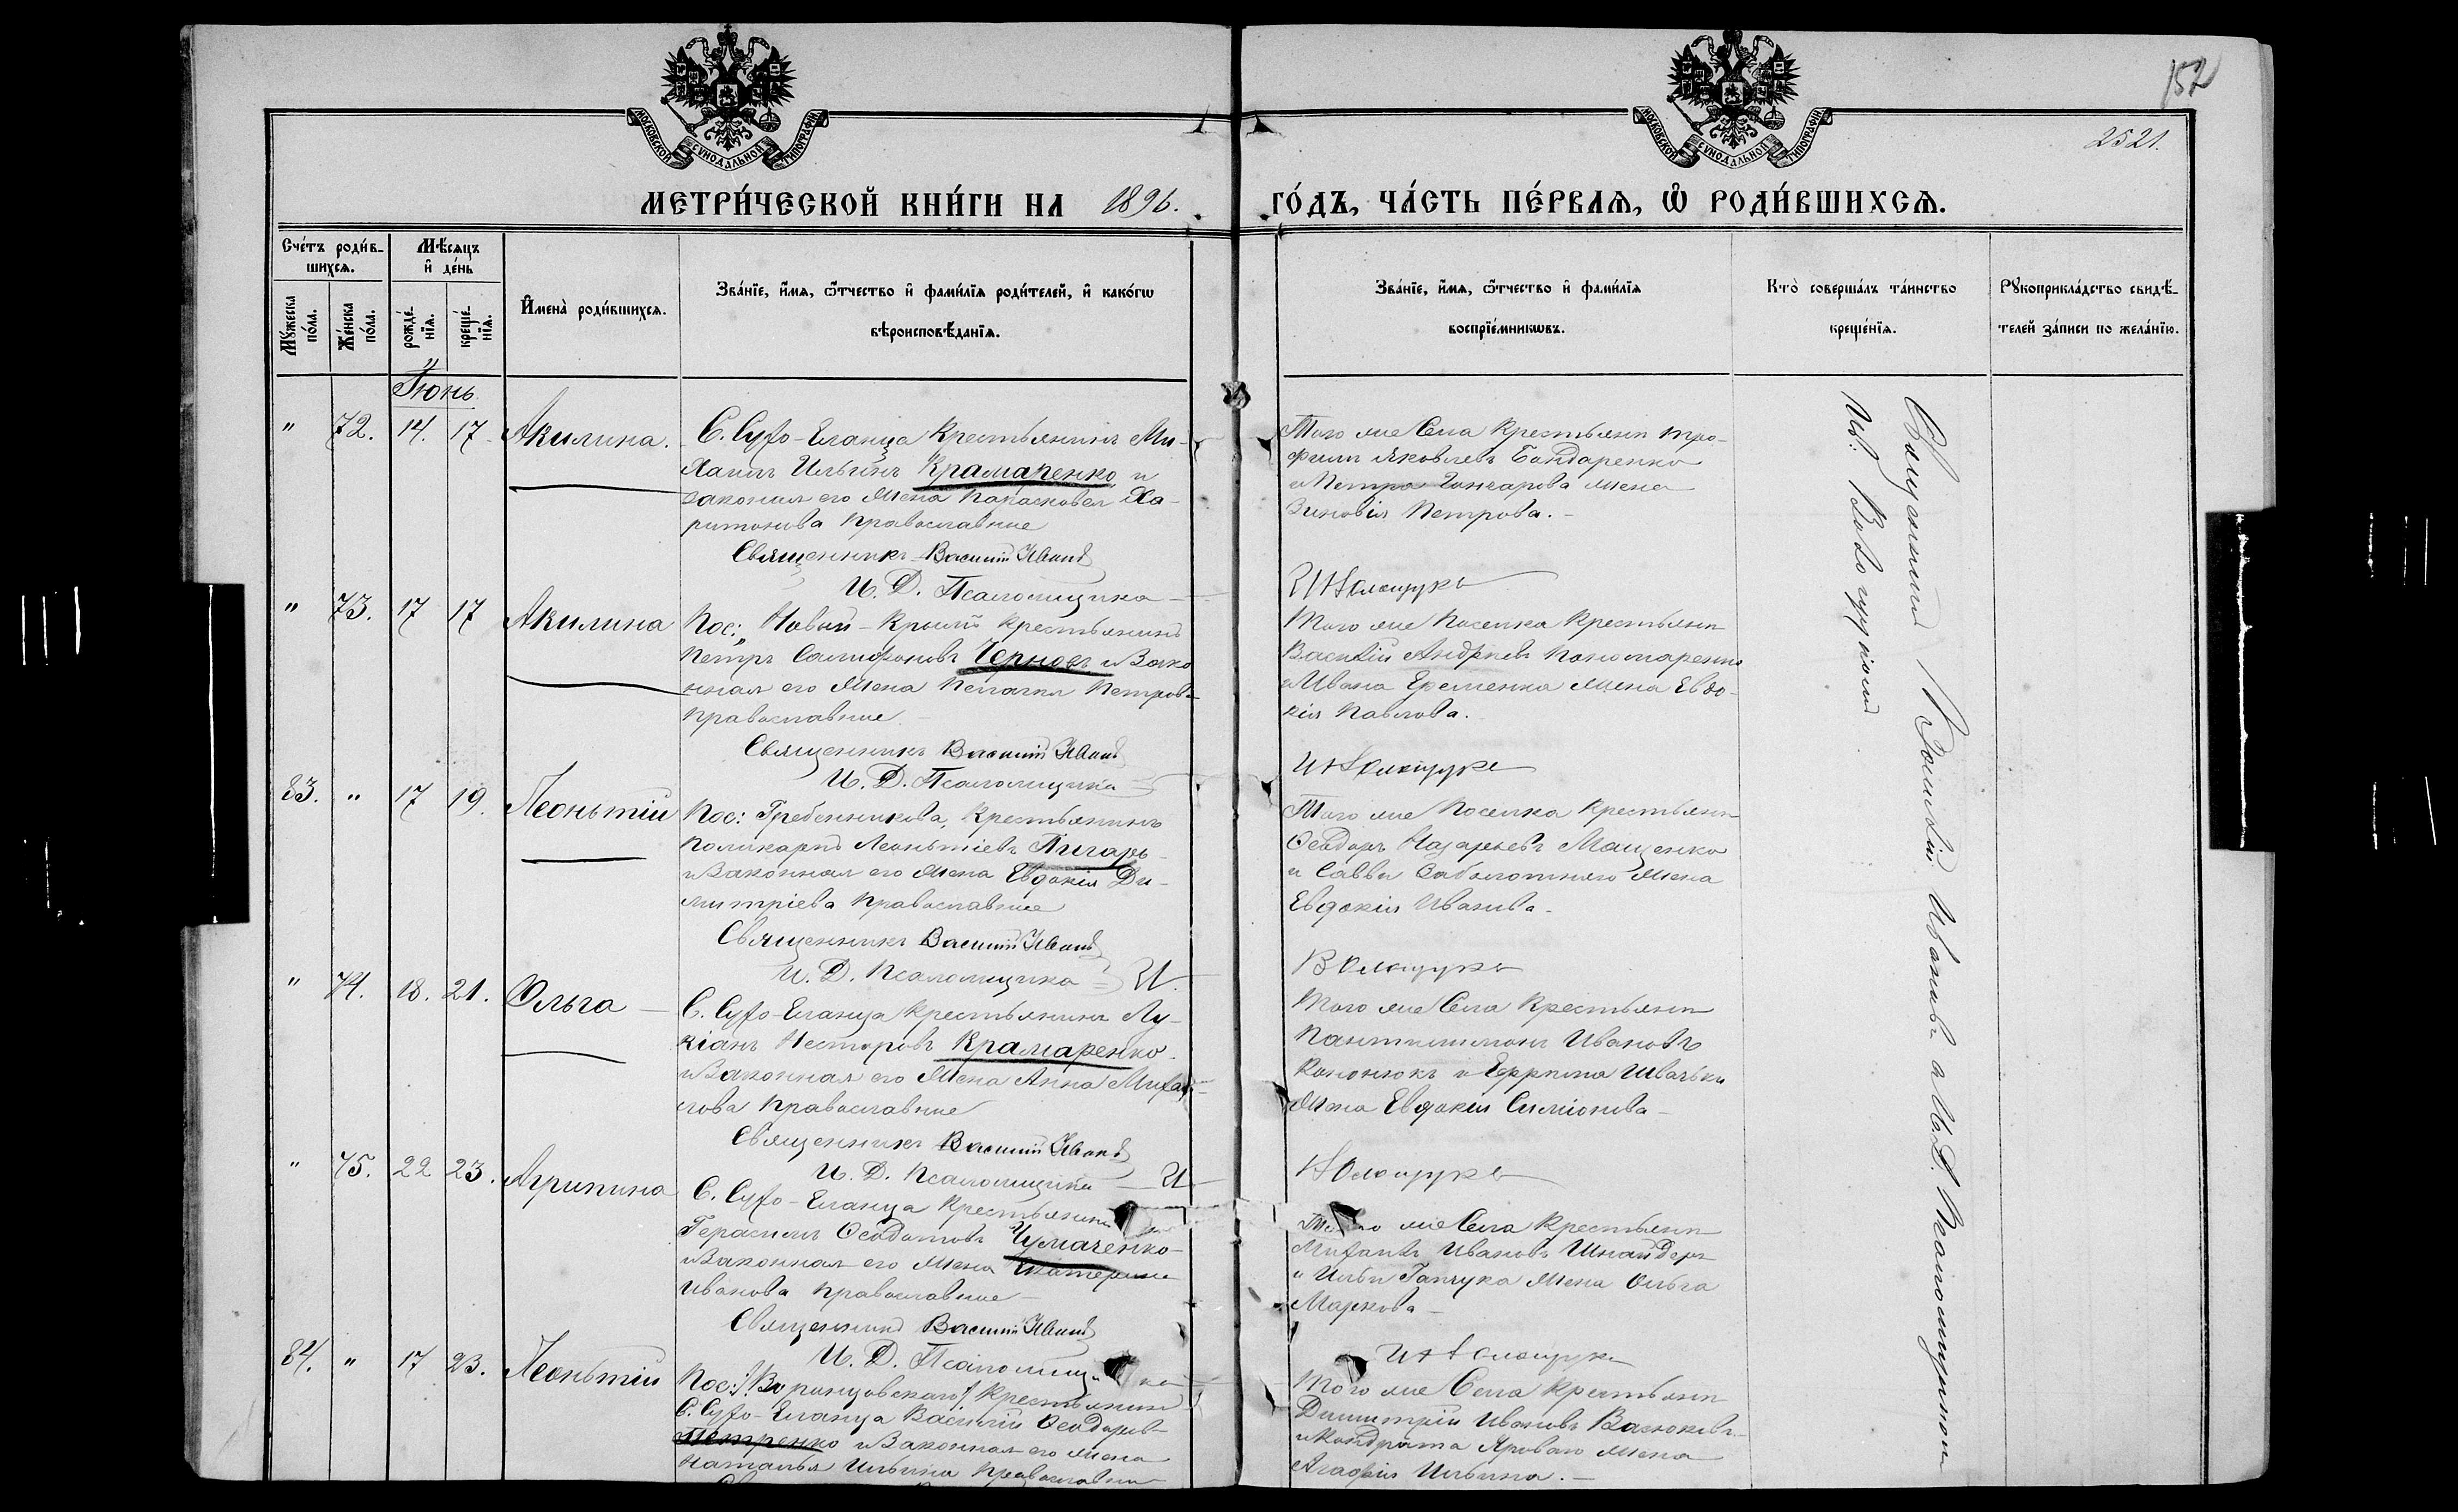 152
2521.
МОСКОВСКОЙ СѴНОДАЛЬНОЙ ТИПОГРАФІИ
МОСКОВСКОЙ СѴНОДАЛЬНОЙ ТИПОГРАФІИ
МЕТРИ́ЧЕСКОЙ КНИ́ГИ НА 1896.
ГО́ДЪ, ЧА́СТЬ ПЕ́РВАѦ, Ѡ҆ РОДИ́ВШИХСѦ.
Сче́тъ роди́в-
шихсѧ.
Мѣ́сѧцъ
и҆ де́нь
Мꙋ́жеска
по́ла.
Же́нска
по́ла.
рожде́-
нїѧ.
креще́-
нїѧ.
И҆мена̀ роди́вшихсѧ.
Зва́нїе, и҆́мѧ, ѻ҆́тчество и҆ фами́лїѧ роди́телей, и҆ како́гѡ
вѣроисповѣ́данїѧ.
Зва́нїе, и҆́мѧ, ѻ҆́тчество и҆ фами́лїѧ
воспрїе́мникѡвъ.
Кто̀ соверша́лъ та́инство
креще́нїѧ.
Рꙋкоприкла́дство свидѣ́-
телей за́писи по жела́нїю.
Іюнь
" 72. 14. 17 Акилина.
С. Сухо-Еланца Крестьянинъ Ми-
хаилъ Ильинъ Крамаренко и
законная его жена Парасковея Ха-
ритонова Православные
Священникъ Василій Ивановъ
И. Д. Псаломщика
Того же Села Крестьянин Тро-
фимъ Яковлевъ Бондаренко
и Петра Гончарова жена
Зиновія Петрова.
" 73. 17 17 Акилина
Пос: Новый-Крымъ Крестьянинъ
Петръ Самифоновъ Черновъ и Зако
нная его жена Пелагия Петрова
Православные
Священникъ Василій Ивановъ
И. Д. Псаломщика
Того же Поселка Крестьянин
Василій Андреевъ Пономаренко
и Ивана Еременка жена Евдо-
кія Павлова.
83. " 17 19. Леонътій
Пос: Гребенникова, Крестьянинъ
Поликарпъ Леонътіевъ Пигарь
и Законная его жена Евдокія Ди-
митріева Православные
Священникъ Василій Ивановъ
И. Д. Псаломщика
Того же Поселка Крестьянин
Ѳеодоръ Назарьевъ Мащенко
и Саввы Заболотняго жена
Евдокія Иванова.
" 74. 18. 21. Ольга
С. Сухо-Еланца Крестьянинъ Лу-
кіанъ Несторовъ Крамаренко
и Законная его жена Анна Михаи-
лова Православные
Священникъ Василій Ивановъ
И. Д. Псаломщика
Того же Села Крестьянин
Пантилимонъ Ивановъ
Кононюкъ и Ефрима Швачьки
жена Евдокія Симіонова
" 75. 22 23. Агрипина
С. Сухо-Еланца Крестьянинъ
Герасимъ Ѳеодотовъ Чумаченко
и Законная его жена Екатерина
Иванова Православные
Священникъ Василій Ивановъ
И. Д. Псаломщика
Того же Села Крестьянин
Михаилъ Ивановъ Шнайдеръ
и Ильи Гапчука жена Ольга
Маркова
84. " 17 23. Леонътій
Пос: Воронцовскаго Крестьянинъ
С. Сухо-Еланца Василій Ѳеодоровъ
Петренко и Законная его жена
Наталья Ильина Православные
Того же Села Крестьянин
Димитрій Ивановъ Васюковъ
и Кондрата Яроваго жена
Агафія Ильина.
Священникъ Василій Ивановъ и И. Д. Псаломщика